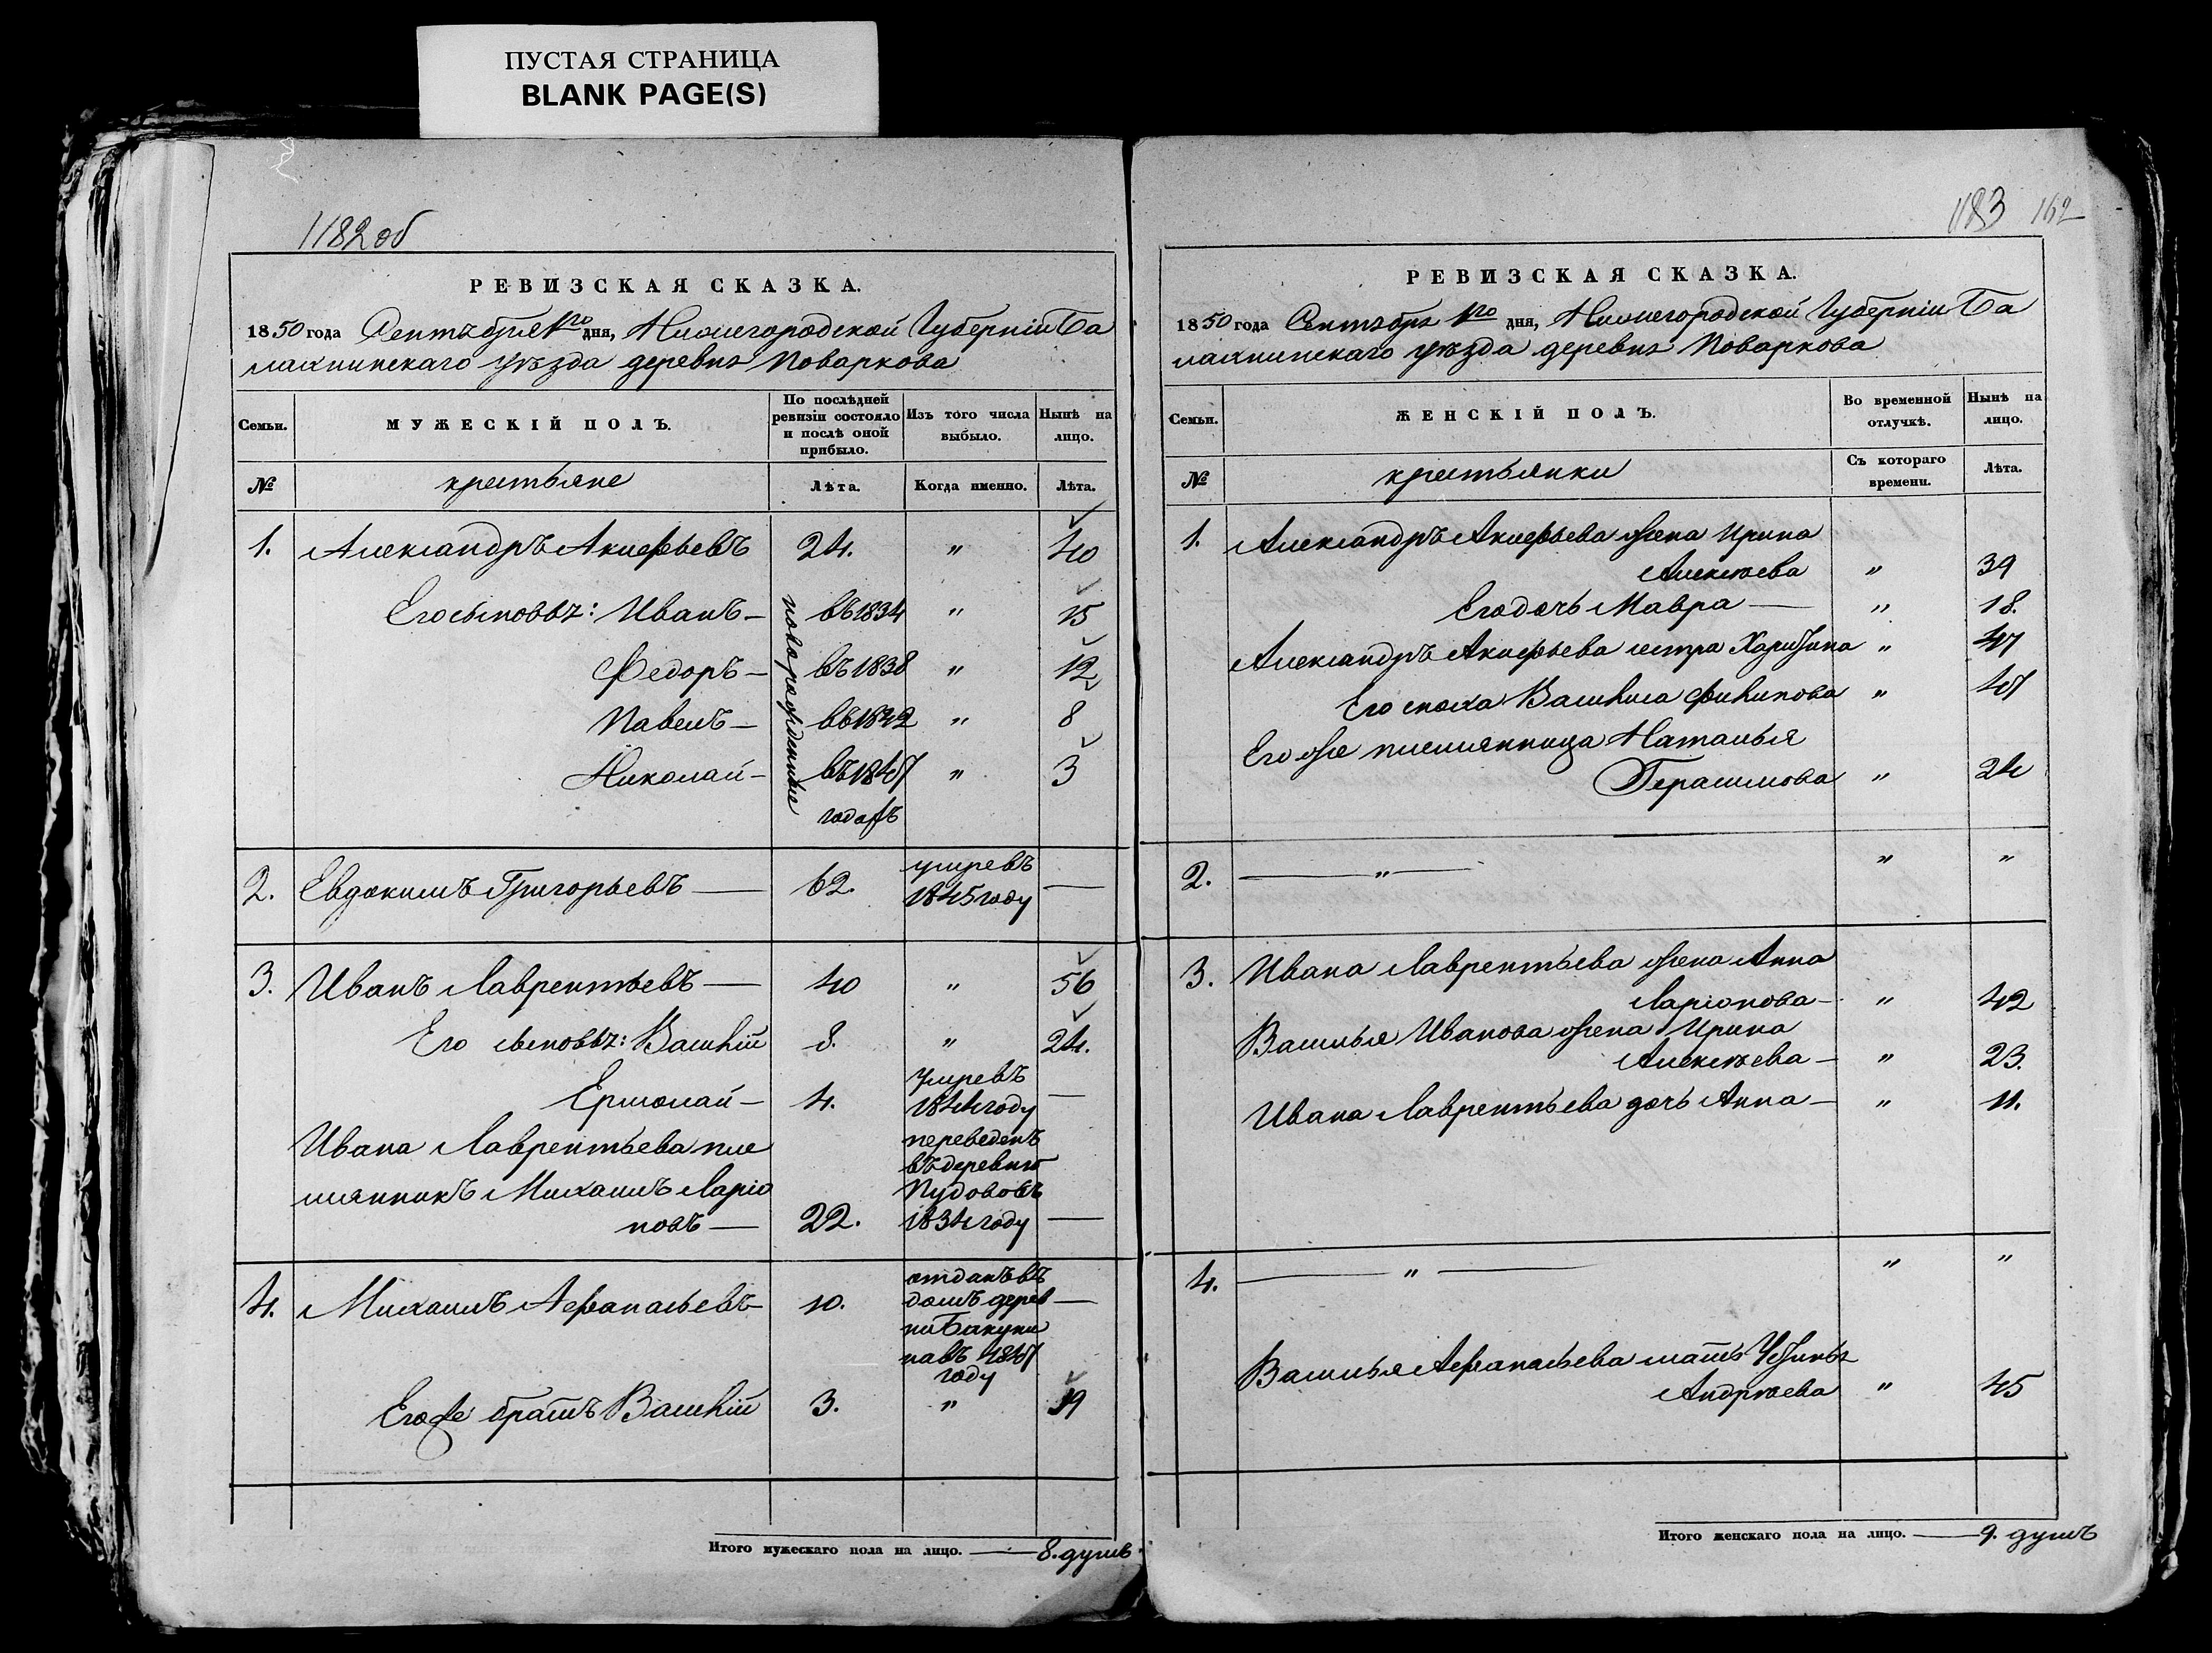 ПУСТАЯ СТРАНИЦА
BLANK PAGE(S)
1182 об
РЕВИЗСКАЯ СКАЗКА.
1850 года Сентября 1го дня, Нижегородской Губерніи Ба
лахнинскаго уѣзда деревнѣ Поваркова
Семьи. МУЖЕСКІЙ ПОЛЪ. По послѣдней ревизіи состояло и послѣ оной прибыло. Изъ того числа выбыло. Нынѣ на лицо.
№ крестьяне Лѣта. Когда именно. Лѣта.
1. Александръ Акифьевъ 24. " 40
Его сыновья: Иванъ – въ 1834 " 15
новорожденные
Федоръ – въ 1838 " 12
Павелъ – въ 1842 " 8
Николай – въ 1847 " 3
годахъ
2. Евдокимъ Григорьевъ — 62. умре въ
1845 году —
3. Иванъ Лаврентьевъ — 40 " 56
Его сыновья: Василій 8. " 24.
Ермолай – 4. умре въ
1844 году —
Ивана Лаврентьева пле
мянникъ Михаилъ Ларіо
новъ — 22. переведенъ
въ деревню
Пудовово
1834 году —
4. Михаилъ Афанасьевъ 10. отданъ въ
домъ дерев —
ни Бакуни
на въ 1847
году
Его же братъ Василій 3. " 19
Итого мужескаго пола на лицо. — 8. душъ
1183 162
РЕВИЗСКАЯ СКАЗКА.
1850 года Сентябрь 1го дня, Нижегородской Губерніи Ба
лахнинскаго уѣзда деревнѣ Поваркова
Семьи. ЖЕНСКІЙ ПОЛЪ. Во временной отлучкѣ. Нынѣ на лицо.
№ крестьянки Съ котораго времени. Лѣта.
1. Александръ Акифьева жена Ирина
Алексѣева " 39
Его дочь Мавра — " 18.
Александръ Акифьева сестра Харитина " 47
Его сноха Василиса Филипова " 47
Его же племянница Наталья
Герасимова " 24
2. — " — " "
3. Ивана Лаврентьева жена Анна
Ларіонова – " 42
Василья Иванова жена Ирина
Алексѣева – " 23.
Ивана Лаврентьева дочь Анна – " 11.
4. — " — " "
Василья Афанасьева мать Устинья
Андрѣева " 45
Итого женскаго пола на лицо. — 9. душъ